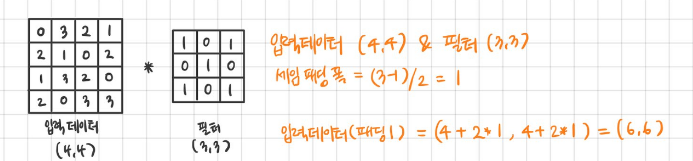 0 3 2 1
2 1 0 2
1 3 2 0
2 0 3 3
입력데이터
(4,4)
*
1 0 1
0 1 0
1 0 1
필터
(3,3)
입력데이터 (4,4) & 필터 (3,3)
세임 패딩 폭 = (3-1)/2 = 1
입력데이터(패딩1) = (4+2*1, 4+2*1) = (6,6)